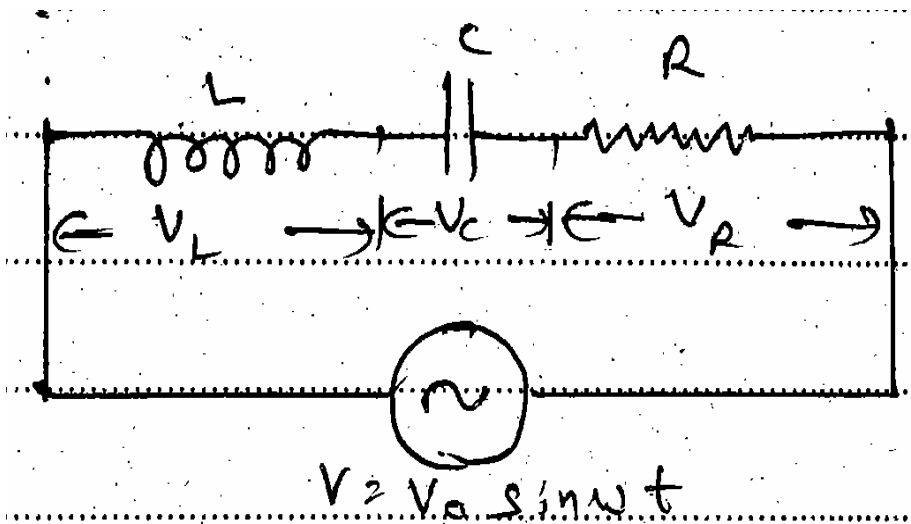 C
L R
V_L V_C V_R
V = V_0 sin ω t